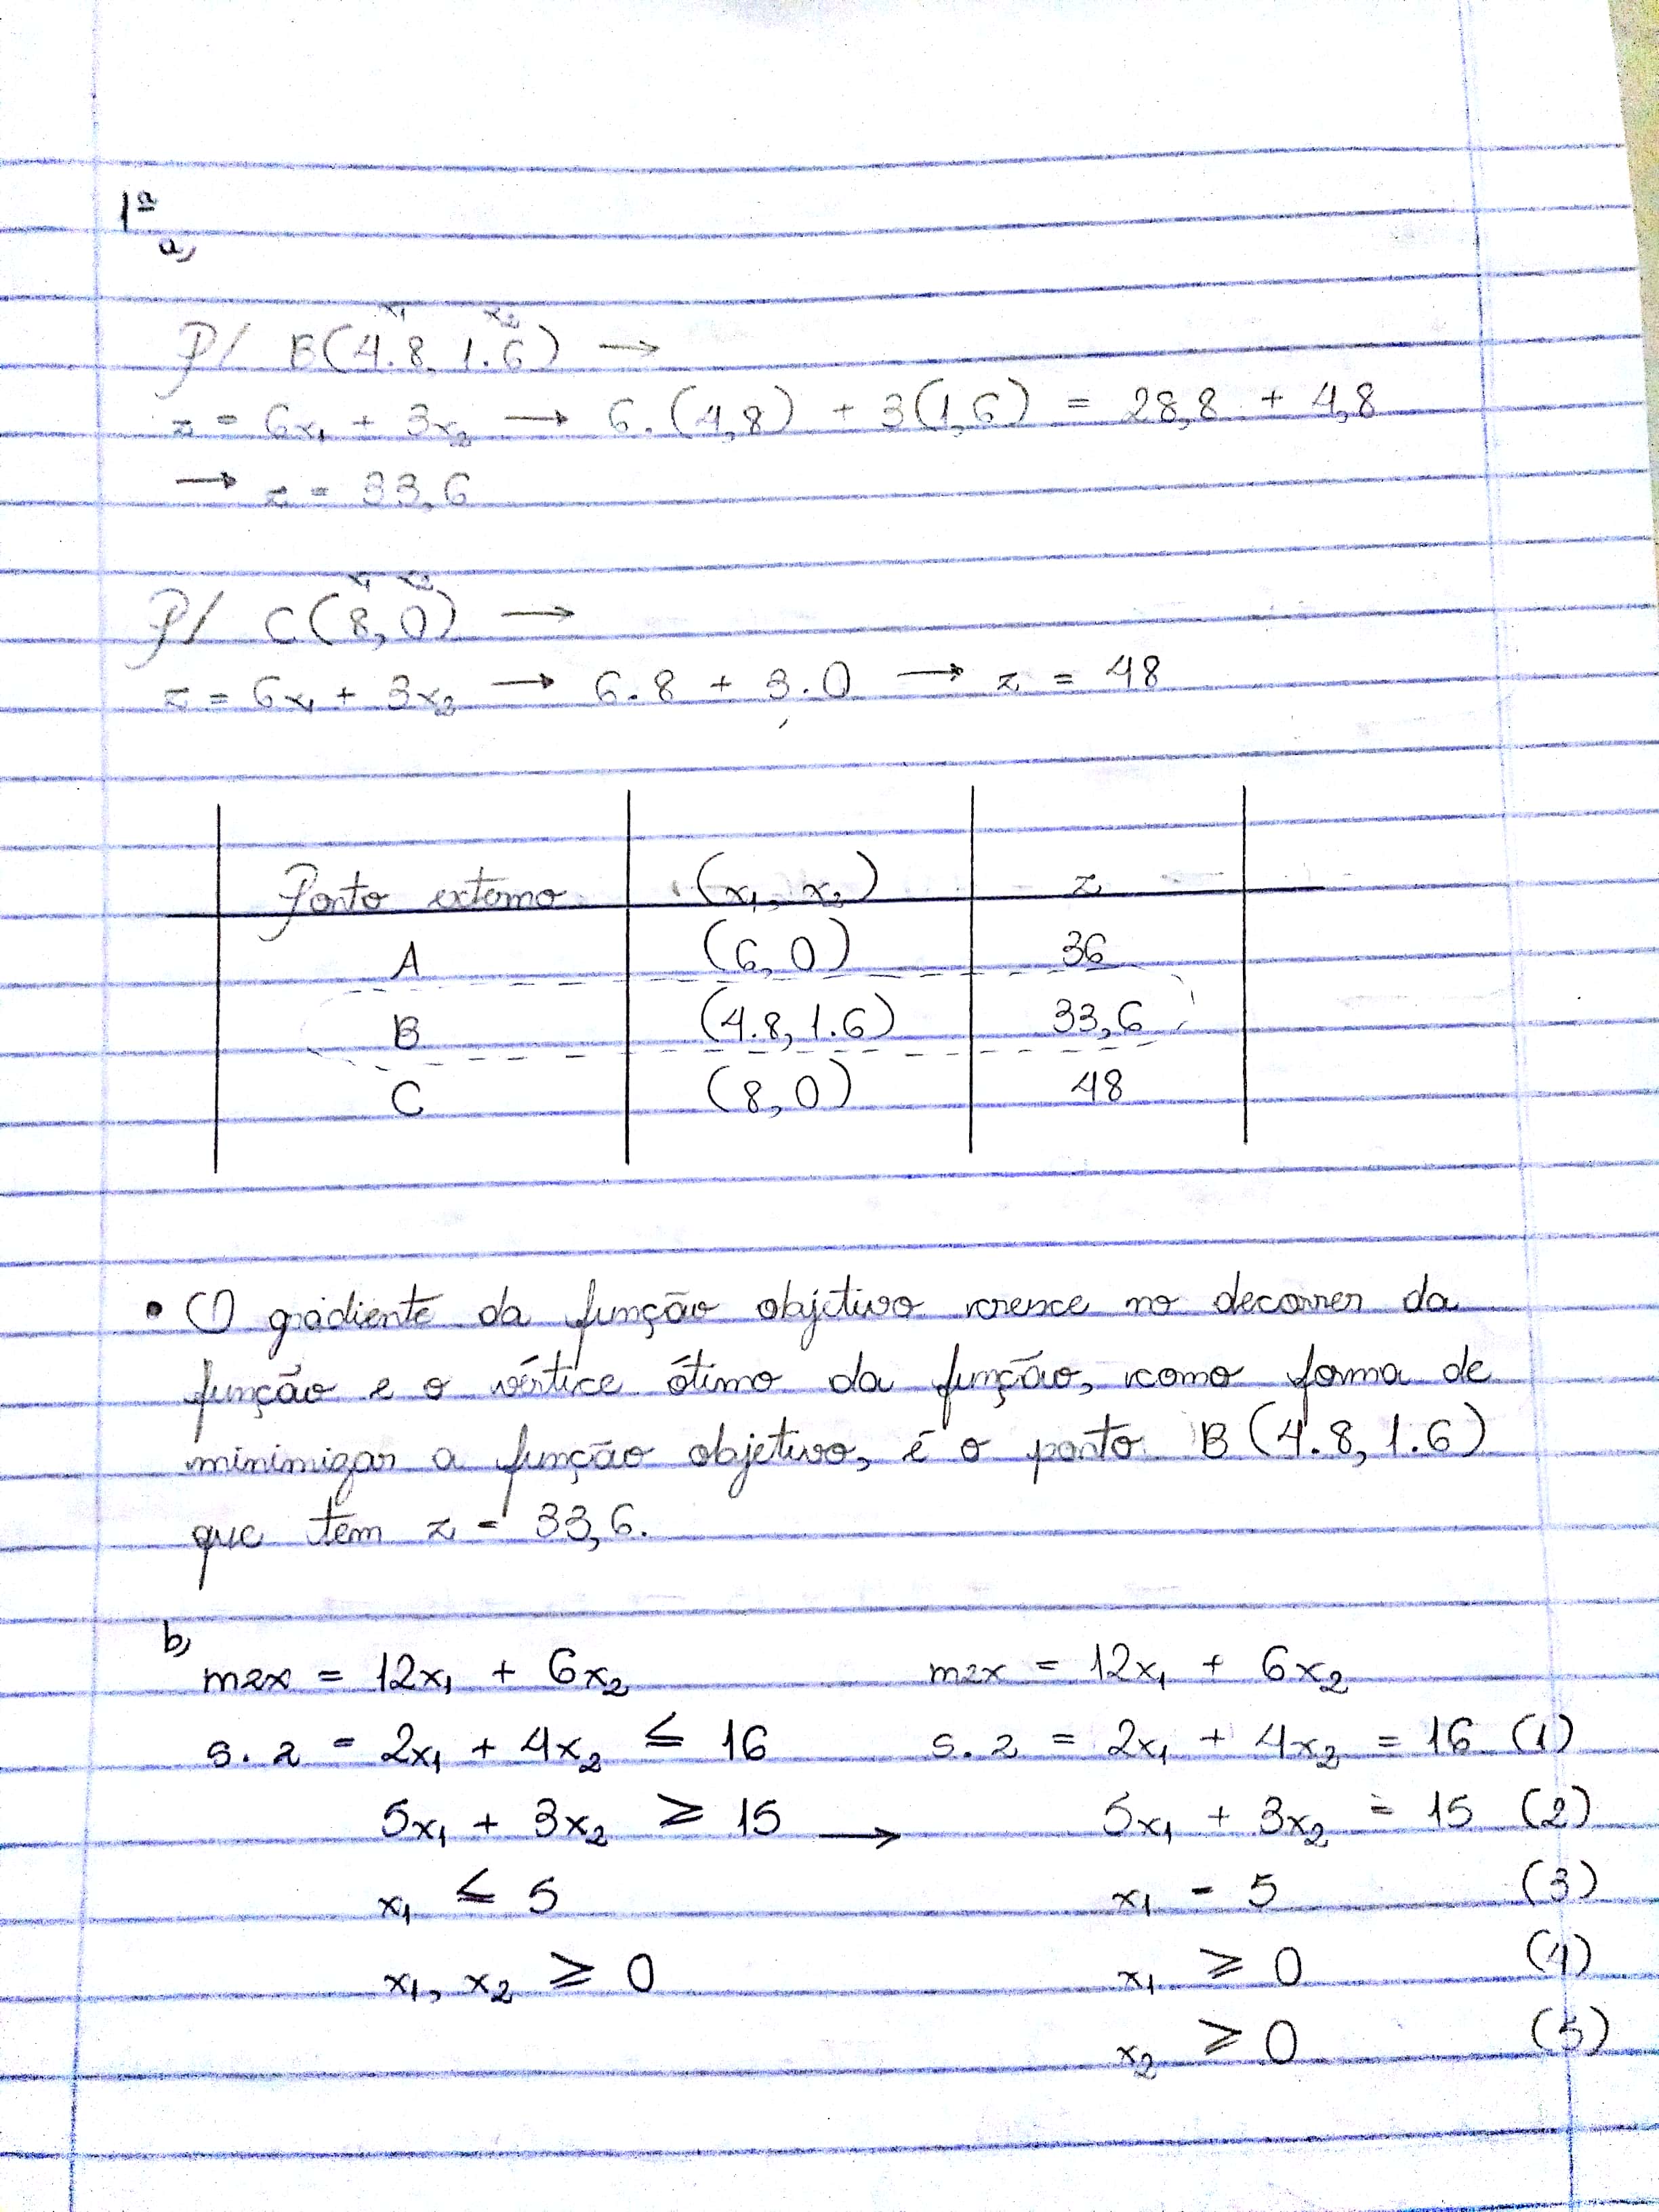 1ª
a)
x1 x2
P/ B(4.8, 1.6) →
z = 6x1 + 3x2 → 6.(4,8) + 3(1,6) = 28,8 + 4,8
→ z = 33,6
x1 x2
P/ C(8,0) →
z = 6x1 + 3x2 → 6.8 + 3.0 → z = 48
Ponto extemo (x1, x2) z
A (6,0) 36
B (4.8, 1.6) 33,6
C (8,0) 48
• O gradiente da função objetivo cresce no decorrer da
função e o vértice ótimo da função, como forma de
minimizar a função objetivo, é o ponto B (4.8, 1.6)
que tem z = 33,6.
b)
max = 12x1 + 6x2 max = 12x1 + 6x2
s. a = 2x1 + 4x2 ≤ 16 s. a = 2x1 + 4x2 = 16 (1)
5x1 + 3x2 ≥ 15 → 5x1 + 3x2 = 15 (2)
x1 ≤ 5 x1 = 5 (3)
x1, x2 ≥ 0 x1 ≥ 0 (4)
x2 ≥ 0 (5)